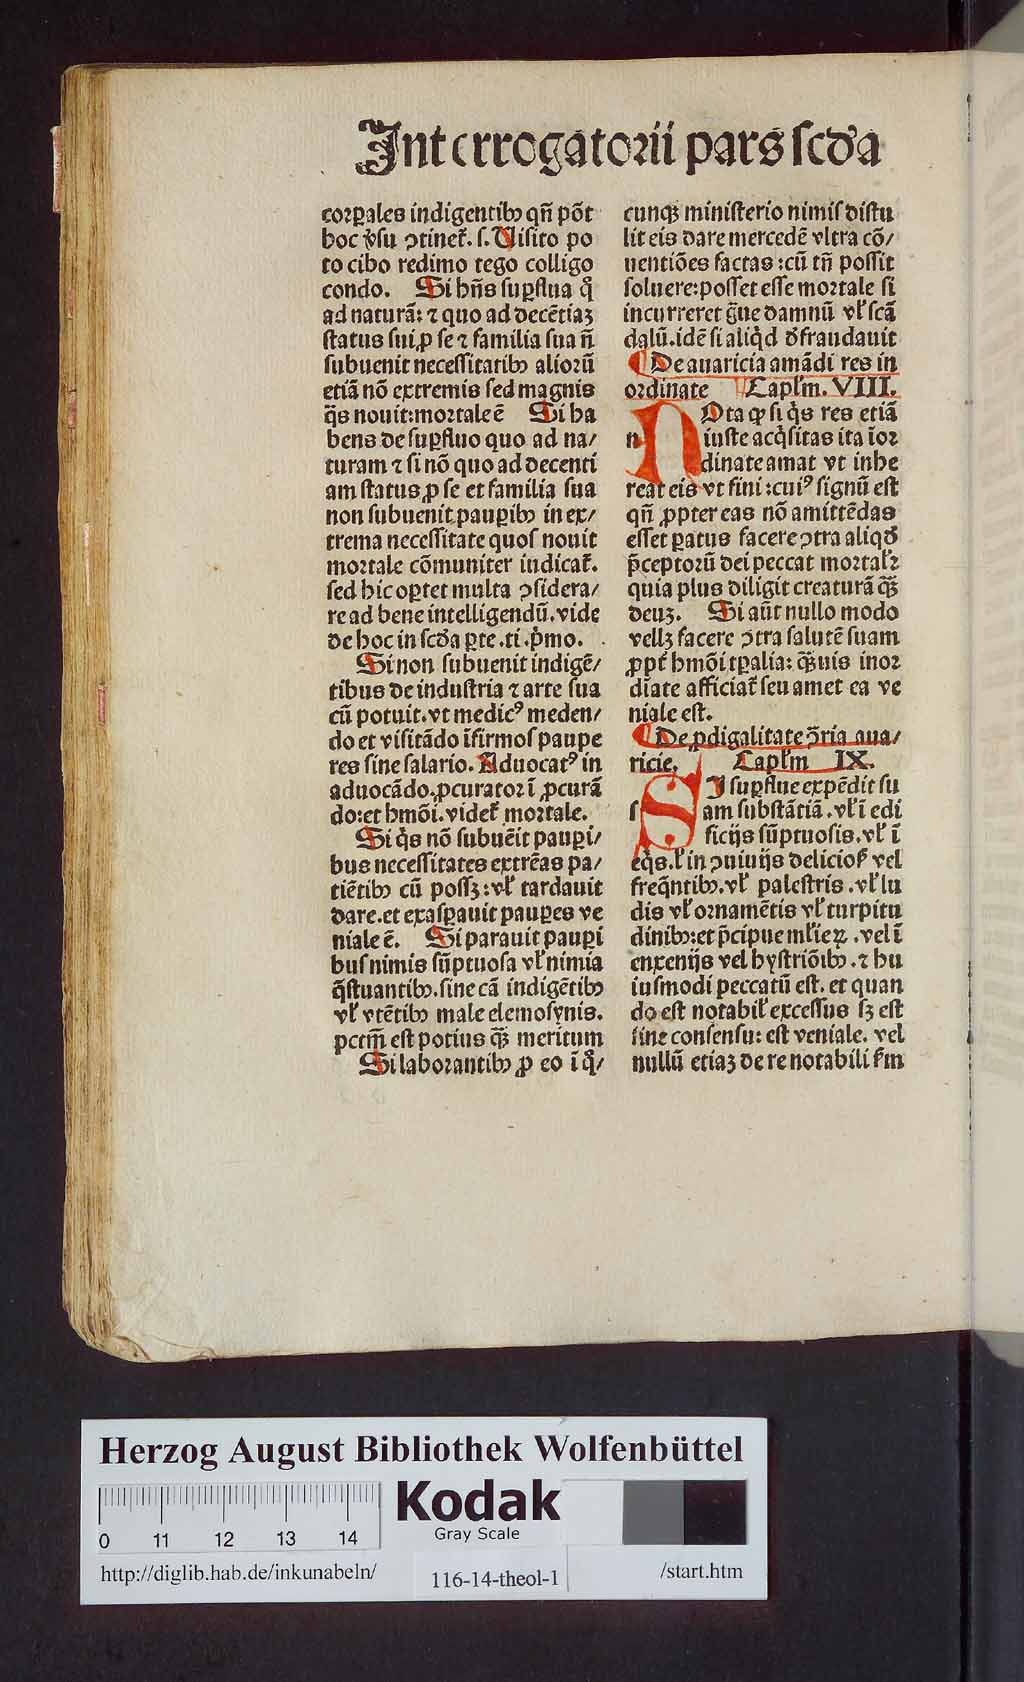 Interrogatorii pars scďa
corꝑales indigentibꝫ qñ põt
hoc ꝟsu ꝯtinet᷑. s. Uisito po
to cibo redimo tego colligo
condo. Si hñs suꝑflua qͥ
ad naturã: ⁊ quo ad decētiaꝫ
status sui ꝓ se ⁊ familia sua ñ
subuenit necessitatibꝫ aliorū
etiã nõ extremis sed magnis
q̃s nouit: mortale ē Si ha
bens de suꝑfluo quo ad na/
turam ⁊ si nõ quo ad decenti
am status ꝓ se et familia sua
non subuenit pauꝑibꝫ in ex/
trema necessitate quos nouit
mortale cõmuniter indicat᷑.
sed hic oꝑtet multa ꝯsidera/
re ad bene intelligendū. vide
de hoc in scďa ꝑte .ti. pͥmo.
Si non subuenit indigē/
tibus de industria ⁊ arte sua
cū potuit. vt medicꝰ meden/
do et visitãdo ĩfirmos paupe
res sine salario. Aduocatꝰ in
aduocãdo. ꝓcurator ĩ ꝓcurã
do: et hmõi. videt᷑ mortale.
Si qͥs nõ subuēit pauꝑi/
bus necessitates extrēas pa/
tiētibꝫ cū possꝫ: vl̛ tardauit
dare. et exasꝑauit pauꝑes ve
niale ē. Si parauit pauꝑi
bus nimis sūptuosa vl̛ nimia
q̃stuantibꝫ. sine cã indigētibꝫ
vl̛ vtētibꝫ male elemosynis.
pctm̃ est potius qꝫ̃ meritum
Si laborantibꝫ ꝓ eo ĩ qͥ/
cunqꝫ ministerio nimis distu
lit eis dare mercedē vltra cõ/
uentiões factas: cū tñ possit
soluere: posset esse mortale si
incurreret g̃ue damnū vl̛ scã
dalū. idē si aliqͥd defraudauit
¶ De auaricia amãdi res in
ordinate ¶ Capl̛m. VIII.
n Ota ꝙ si qͥs res etiã
iuste acqͥsitas ita ĩor
dinate amat vt inhe
reat eis vt fini: cuiꝰ signū est
qñ ꝓpter eas nõ amittēdas
esset ꝑatus facere ꝯtra aliqď
p̃ceptorū dei peccat mortal̛r
quia plus diligit creaturã qꝫ̃
deuꝫ. Si aūt nullo modo
vellꝫ facere ꝯtra salutē suam
ꝓpt̛ hmõi tꝑalia: qꝫ̃uis inor
dĩate afficiat᷑ seu amet ea ve
niale est.
¶ De ꝓdigalitate ꝯ̃ria aua/
ricie. Capl̛m IX.
s I suꝑflue expēdit su
am substãtiã. vl̛ ĩ edi
ficijs sūptuosis. vl̛ ĩ
eqͥs. l̛ in ꝯuiuijs delicios̛ vel
freq̃ntibꝫ. vl̛ palestris. vl̛ lu
dis vl̛ ornamētis vl̛ turpitu
dinibꝫ: et p̃cipue ml̛ieꝝ. vel ĩ
enxenijs vel hystriõibꝫ. ⁊ hu
iusmodi peccatū est. et quan
do est notabil̛ excessus sꝫ est
sine consensu: est veniale. vel
nullū etiaꝫ de re notabili s̛m
Herzog August Bibliothek Wolfenbüttel
0 11 12 13 14
Kodak
Gray Scale
http://diglib.hab.de/inkunabeln/
116-14-theol-1
/start.htm